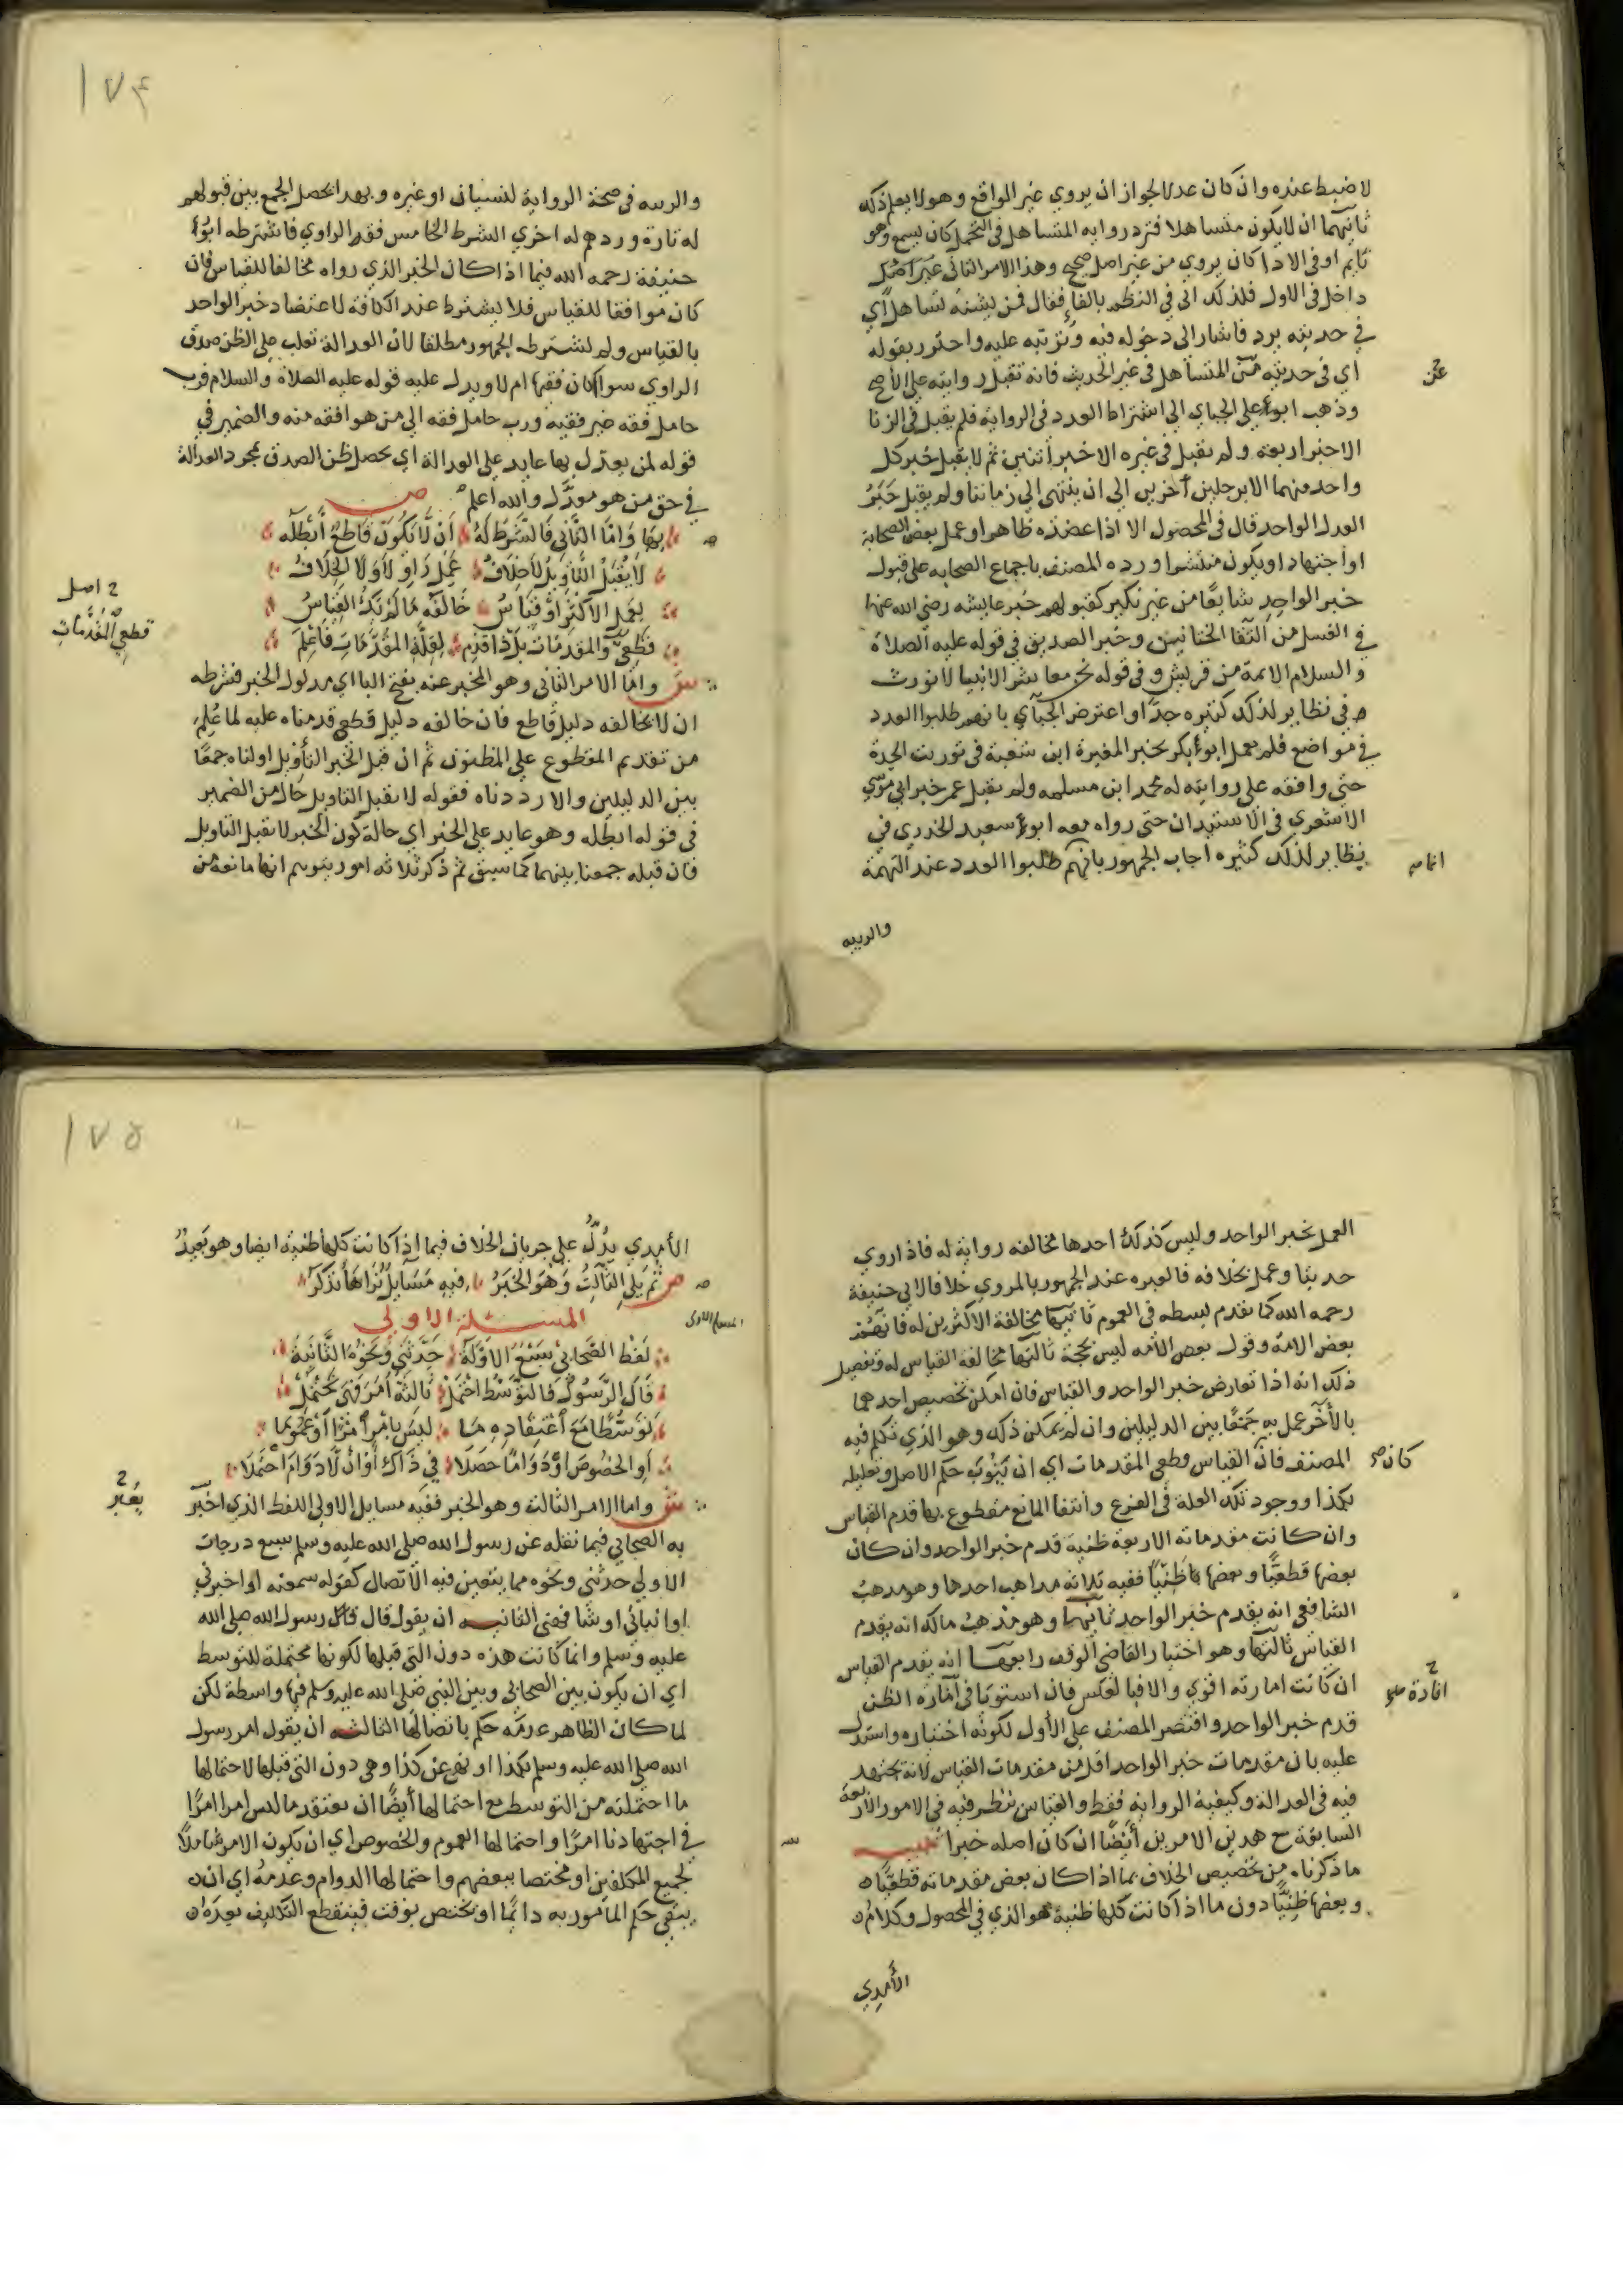 لا ضبط عنده وان كان عدلا لجواز ان يروي غير الواقع وهو لا يعلم ذلك
ثانيهما ان لا يكون متساهلا فترد رواية المتساهل في التحمل كان يسمع وهو
نايم او في الادا كان يروي من غير اصل صحيح وهذا الامر الثاني
داخل في الاول فلذلك اتى في النظم بالفاء فقال فمن تساهلا اي
في حديثه يرد فاشار الى دخوله فيه وترتبه عليه واحترز بقوله
اي في حديثه عن المتساهل في غير الحديث فانه تقبل روايته على الاصح
عن
وذهب ابو علي الجباي الى اشتراط العدد في الرواية فلم يقبل في الزنا
الا خبر اربعة ولم يقبل في غيره الا خبر اثنين ثم لا يقبل خبر كل
واحد منهما الا برجلين آخرين الى ان ينتهي الى زماننا ولم يقبل خبر
العدل الواحد قال في المحصول الا اذا عضده ظاهر او عمل بعض الصحابة
او اجتهاد او يكون منتشرا ورده المصنف باجماع الصحابه على قبول
خبر الواحد شايعا من غير نكير كقبولهم خبر عايشه رضي الله عنها
في الغسل من التقا الختانين وخبر الصديق في قوله عليه الصلاة
والسلام الائمة من قريش وفي قوله نحن معاشر الانبيا لا نورث
في نظاير لذلك كثيره جدا واعترض الجبآي بانهم طلبوا العدد
في مواضع فلم يعمل ابو بكر بخبر المغيرة ابن شعبة في توريث الجدة
حتى وافقه على روايته له محمد ابن مسلمه ولم يقبل عمر خبر ابي موسي
الاشعري في الاستيذان حتى رواه معه ابو سعيد الخدري في
نظاير لذلك كثيره اجاب الجمهور بانهم طلبوا العدد عند التهمة
انما
والريبه
١٧٤
والريبه في صحة الرواية لنسيان او غيره وبهذا يحصل الجمع بين قبولهم
له تارة وردهم له اخري الشرط الخامس فقه الراوي فاشترطه ابو
حنيفة رحمه الله فيما اذا كان الخبر الذي رواه مخالفا للقياس فان
كان موافقا للقياس فلا يشترط عند الكافة لاعتضاد خبر الواحد
بالقياس ولم يشترطه الجمهور مطلقا لان العدالة تغلب على الظن صدق
الراوي سوا كان فقيها ام لا ويدل عليه قوله عليه الصلاة والسلام فرب
حامل فقه غير فقيه ورب حامل فقه الى من هو افقه منه والضمير في
قوله لمن يعدل بها عايد على العدالة اي يحصل ظن الصدق بمجرد العدالة
في حق من هو معدل والله اعلم ص
وَامَّا الثَّاني فَالشَّرْطُ لَهُ أَنْ لَّا يَكُونَ قَاطِعٌ أَبْطَلَه
لَا يَقْبَلُ التَّأوِيلَ لَاخِلَافُ عَمَلُ رَاوٍ لَا وَلَا الخِلَافُ
بِعَمَلِ الاَكْثَرِ اوْ قِيَاسُ خَالَفَهُ مَا لَمْ يَكُ القِيَاسُ
قَطْعِيَّ وَالمقدِمَات بَلْ ذَا قَدِّم لِقِلَّةِ المُقَدِّمَاتِ فَاعْلَمِ
ح اصل
قطعي المُقَدِّمَاتِ
ش واما الامر الثاني وهو المخبر عنه بفتح البا اي مدلول الخبر فشرطه
ان لا يخالفه دليل قاطع فان خالفه دليل قطعي قدمناه عليه لما عُلِم
من تقديم المقطوع على المظنون ثم ان قبل الخبر التأويل اولناه جمعًا
بين الدليلين والا رددناه فقوله لا يقبل التاويل حال من الضمير
في قوله ابطله وهو عايد على الخبر اي حالة كون الخبر لا يقبل التاويل
فان قبله جمعنا بينهما كما سبق ثم ذكر ثلاثه امور يتوهم انها مانعة من
العمل بخبر الواحد وليس كذلك احدها مخالفه رواية له فاذا روي
حديثا وعمل بخلافه فالعبره عند الجمهور بالمروي خلافا لابي حنيفة
رحمه الله كما تقدم بسطه في العموم ثانيها مخالفة الاكثرين له فانهم
بعض الامة وقول بعض الأمه ليس بحجة ثالثها مخالفه القياس له وتفصيل
ذلك انه اذا تعارض خبر الواحد والقياس فان امكن تخصيص احدهما
بالآخر عمل به جمعًا بين الدليلين وان لم يمكن ذلك وهو الذي تكلم فيه
المصنف فان القياس قطعي المقدمات اي ان ثبوت حكم الاصل وتعليله
كان
بكذا ووجود تلك العلة في الفرع وانتفا المانع مقطوع بها قدم القياس
وان كانت مقدماته الاربعة ظنية قدم خبر الواحد وان كان
بعضها قطعيًا وبعضها ظنيًّا ففيه ثلاثه مذاهب احدها وهو مذهب
الشافعي انه يقدم خبر الواحد ثانيها وهو مذهب مالك انه يقدم
القياس ثالثها وهو اختيار القاضي الوقف رابعها انه يقدم القياس
ان كانت امارته اقوي والا فبالعكس فان استويا في اماره الظن
قدم خبر الواحد واقتصر المصنف على الأول لكونه اختياره واستدل
عليه بان مقدمات خبر الواحد اقل من مقدمات القياس لانه يجتهد
فيه في العدالة وكيفية الرواية فقط والقياس ينظر فيه في الامور الأربعة
السابقة مع هذين الامرين أيضًا ان كان اصله خبرا تنبيه
ما ذكرناه من تخصيص الخلاف بما اذا كان بعض مقدماته قطعيًا
وبعضها ظنيًّا دون ما اذا كانت كلها ظنية هو الذي في المحصول وكلام
الأمدي
١٧٥
الأمدي يدُلُّ على جريان الخلاف فيما اذا كانت كلها ظنية ايضا وهو بعيد
ص ثُمَّ يَلِي الثَّالِثُ وَهْوَ الخَبَرُ فِيهِ مَسَايِلُ نُرَاهَا تُذْكَرُ
المسئلة الاولى
لَفْظُ الصَّحَابِي سَبْعٌ الاَوَّلَةُ حَدَّثَنِي وَنَحْوُهُ الثَّانِيَةُ
قَالَ الرَّسُولُ فَالتَّوَسُّطَ احْتَمَلْ ثَالِثَةٌ أَمَرَ فَهْيَ تَحْتَمِلْ
تَوَسُّطًا مَعَ اعْتِقَادِهِ مَا لَيْسَ بِأَمْرٍ أَمْرًا أَوْ عُمُومَا
أوِ الخُصُوصَ أوْ دَوَامًا حَصَلَا فِي ذَاكَ أَوْ أنْ لَّا دَوَامَ احْتَمَلَا
ش واما الامر الثالث وهو الخبر ففيه مسايل الاولى اللفظ الذي اخبر
به الصحابي فيما نقله عن رسول الله صلى الله عليه وسلم سبع درجات
الاولى حدثني ونحوه مما يتعين فيه الاتصال كقوله سمعته او اخبرني
او انباني او شافهني الثانيه ان يقول قال رسول الله صلى الله
عليه وسلم وانما كانت هذه دون التي قبلها لكونها محتملة للتوسط
اي ان يكون بين الصحابي وبين النبي صلى الله عليه وسلم فيها واسطة لكن
لما كان الظاهر عدمه حكم باتصالها الثالثه ان يقول امر رسول
الله صلى الله عليه وسلم بكذا او نهى عن كذا وهي دون التي قبلها لاحتمالها
ما احتملته من التوسط مع احتمالها أيضًا ان يعتقد ما ليس امرا امرًا
في اجتهادنا امرًا واحتمالها العموم والخصوص اي ان يكون الامر شاملًا
لجميع المكلفين او مختصا ببعضهم واحتمالها الدوام وعدمه اي ان
يبقى حكم المأمور به دائمًا او يختص بوقت فينقطع التكليف بعده